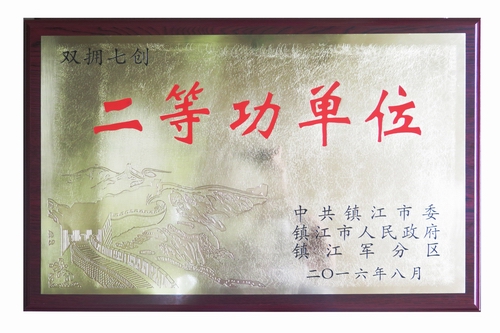 双拥七创
二等功单位
中共镇江市委
镇江市人民政府
镇江军分区
二〇一六年八月